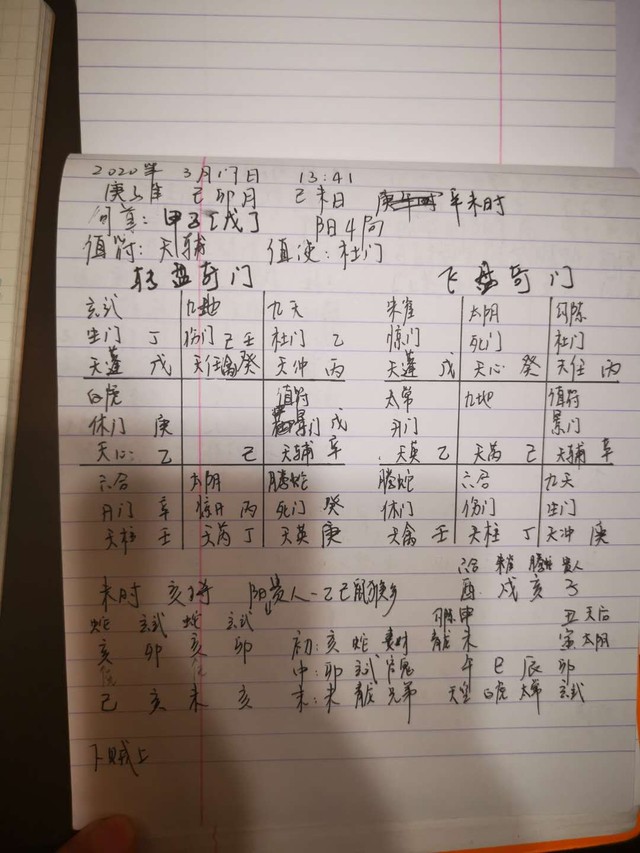 2020年 3月17日 13:41
庚子年 己卯月 己未日 辛未时
旬首:甲子[戊] 阳4局
值符:天辅 值使:杜门
转盘奇门 飞盘奇门
玄武 九地 九天 朱雀 太阴 勾陈
生门 丁 伤门 己 壬 杜门 乙 惊门 死门 杜门
天蓬 戊 天任禽癸 天冲 丙 天蓬 戊 天心 癸 天任 丙
白虎 值符 太常 九地 值符
休门 庚 景门 戊 开门 景门
天心 乙 己 天辅 辛 天英 乙 天芮 己 天辅 辛
六合 太阴 腾蛇 腾蛇 六合 九天
开门 辛 惊门 丙 死门 癸 休门 伤门 生门
天柱 壬 天芮 丁 天英 庚 天禽 壬 天柱 丁 天冲 庚
六合 朱雀 腾蛇 贵人
未时 亥将 阳贵人-乙己鼠猴乡 酉 戌 亥 子
蛇 玄武 蛇 玄武 勾陈申 丑天后
亥 卯 亥 卯 初:亥 蛇 妻财 青龙 未 寅 太阴
中:卯 玄武 官鬼 午 巳 辰 卯
己 亥 未 亥 末:未 青龙 兄弟 天空 白虎 太常 玄武
下贼上